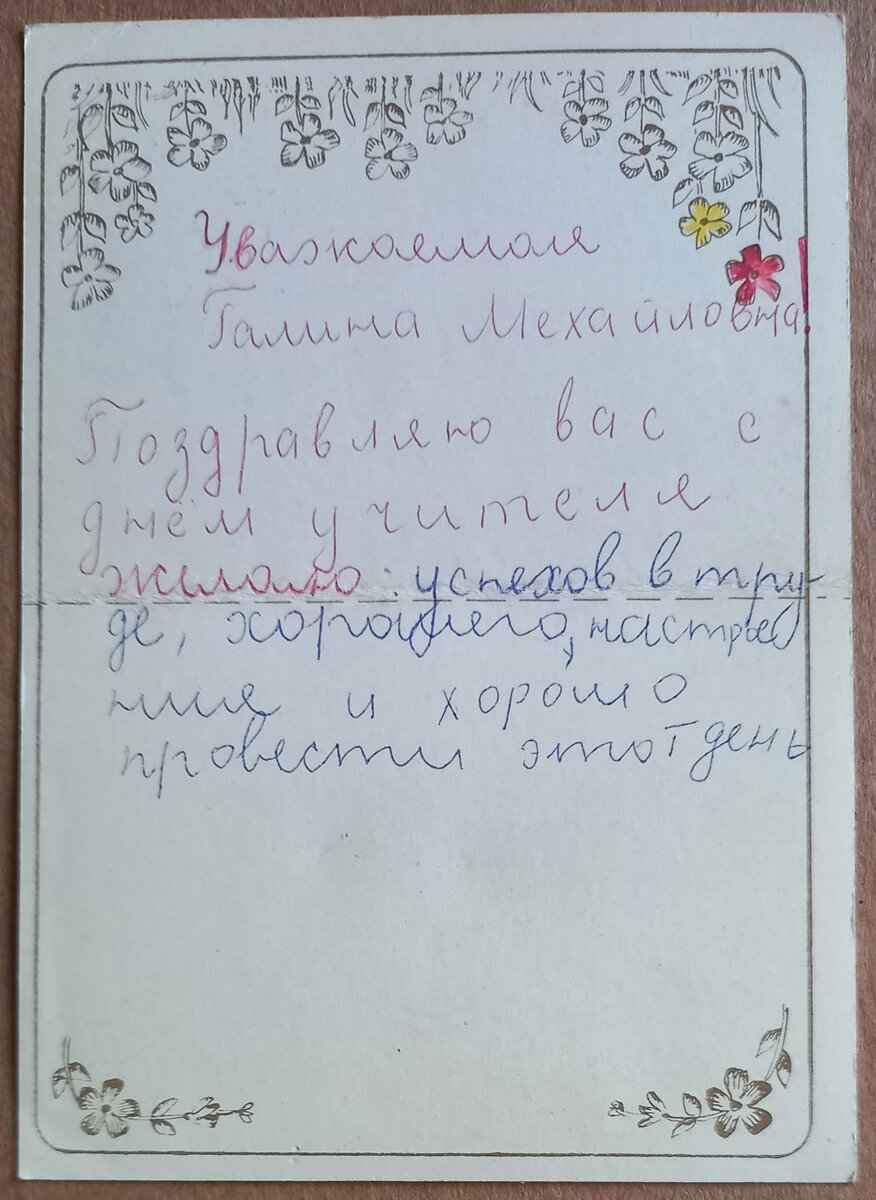 Уважаемая
Галина Мехайловна!
Поздравляю вас с
днём учителя
желаю: успехов в тру-
де, хорошего, настрое
ния и хорошо
провести этот день